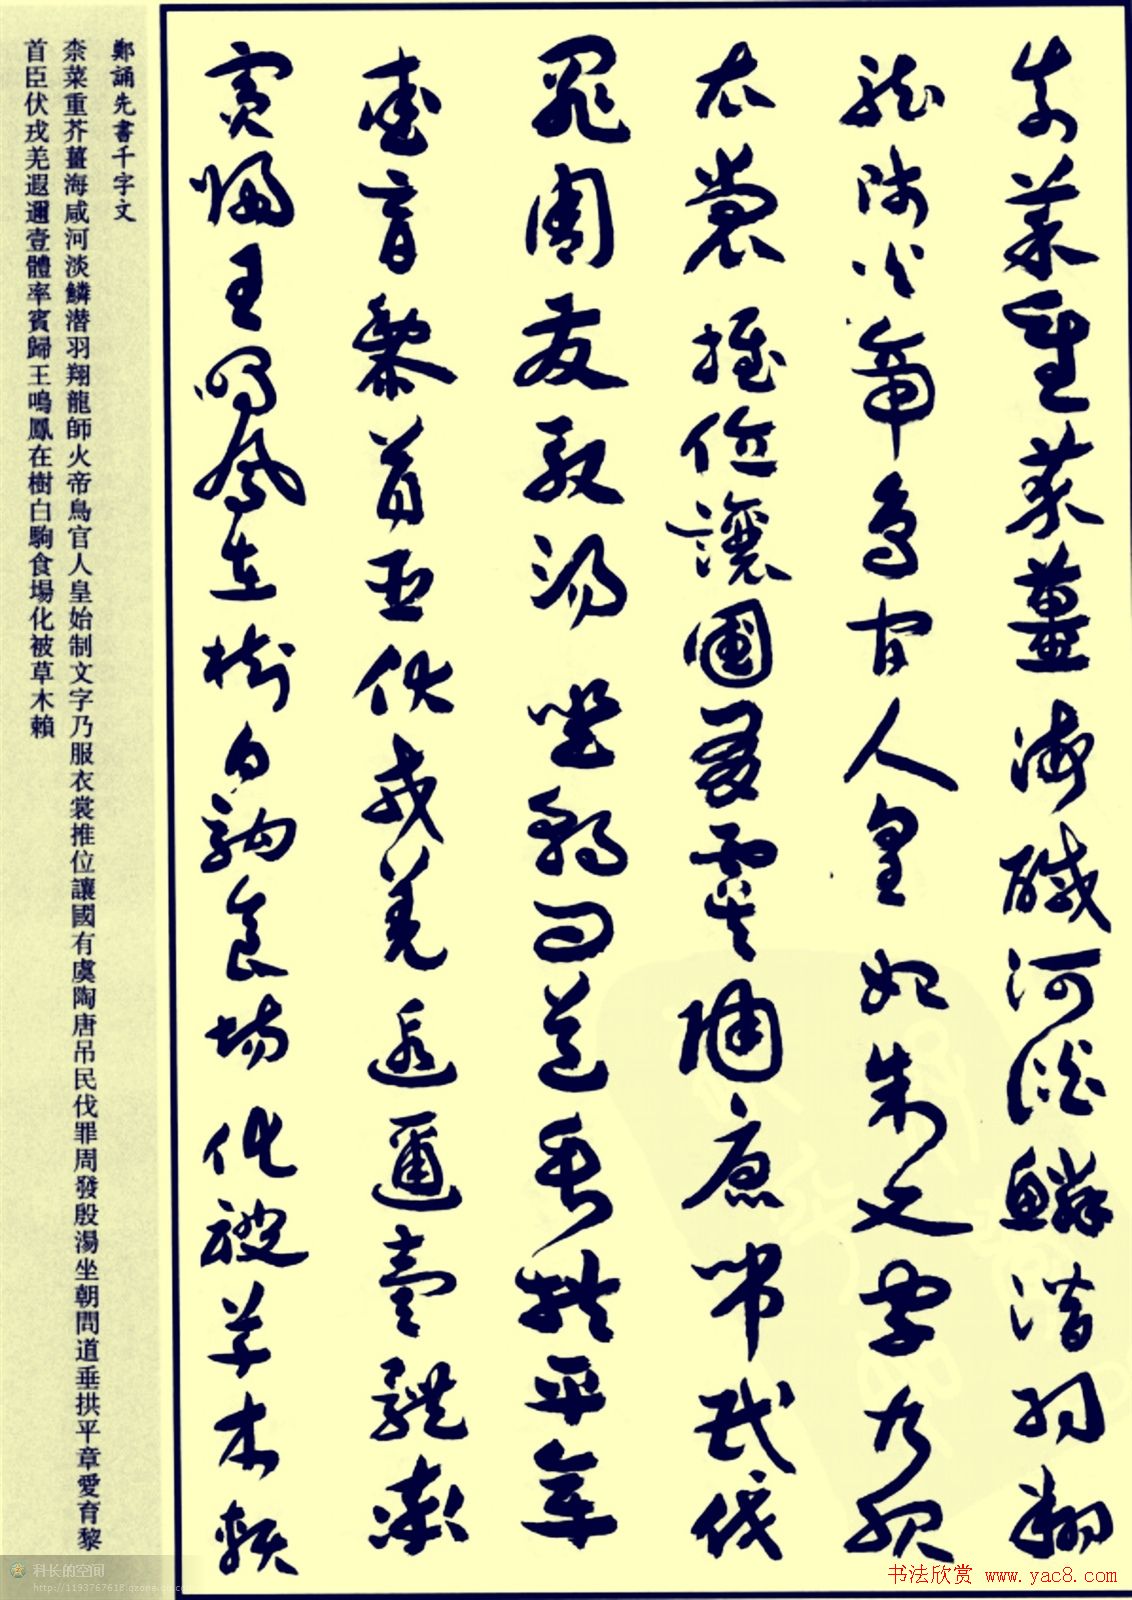 柰菜重芥薑海鹹河淡鱗潛羽翔
龍師火帝鳥官人皇始制文字乃服
衣裳推位讓國有虞陶唐吊民伐
罪周發殷湯坐朝問道垂拱平章
愛育黎首臣伏戎羌遐邇壹體率
賓歸王鳴鳳在樹白駒食場化被草木賴
鄭誦先書千字文
柰菜重芥薑海咸河淡鱗潜羽翔龍師火帝鳥官人皇始制文字乃服衣裳推位讓國有虞陶唐吊民伐罪周發殷湯坐朝問道垂拱平章愛育黎
首臣伏戎羌遐邇壹體率賓歸王鳴鳳在樹白駒食場化被草木賴
科长的空间
http://1193767618.qzone.qq.com
书法欣赏 www.yac8.com